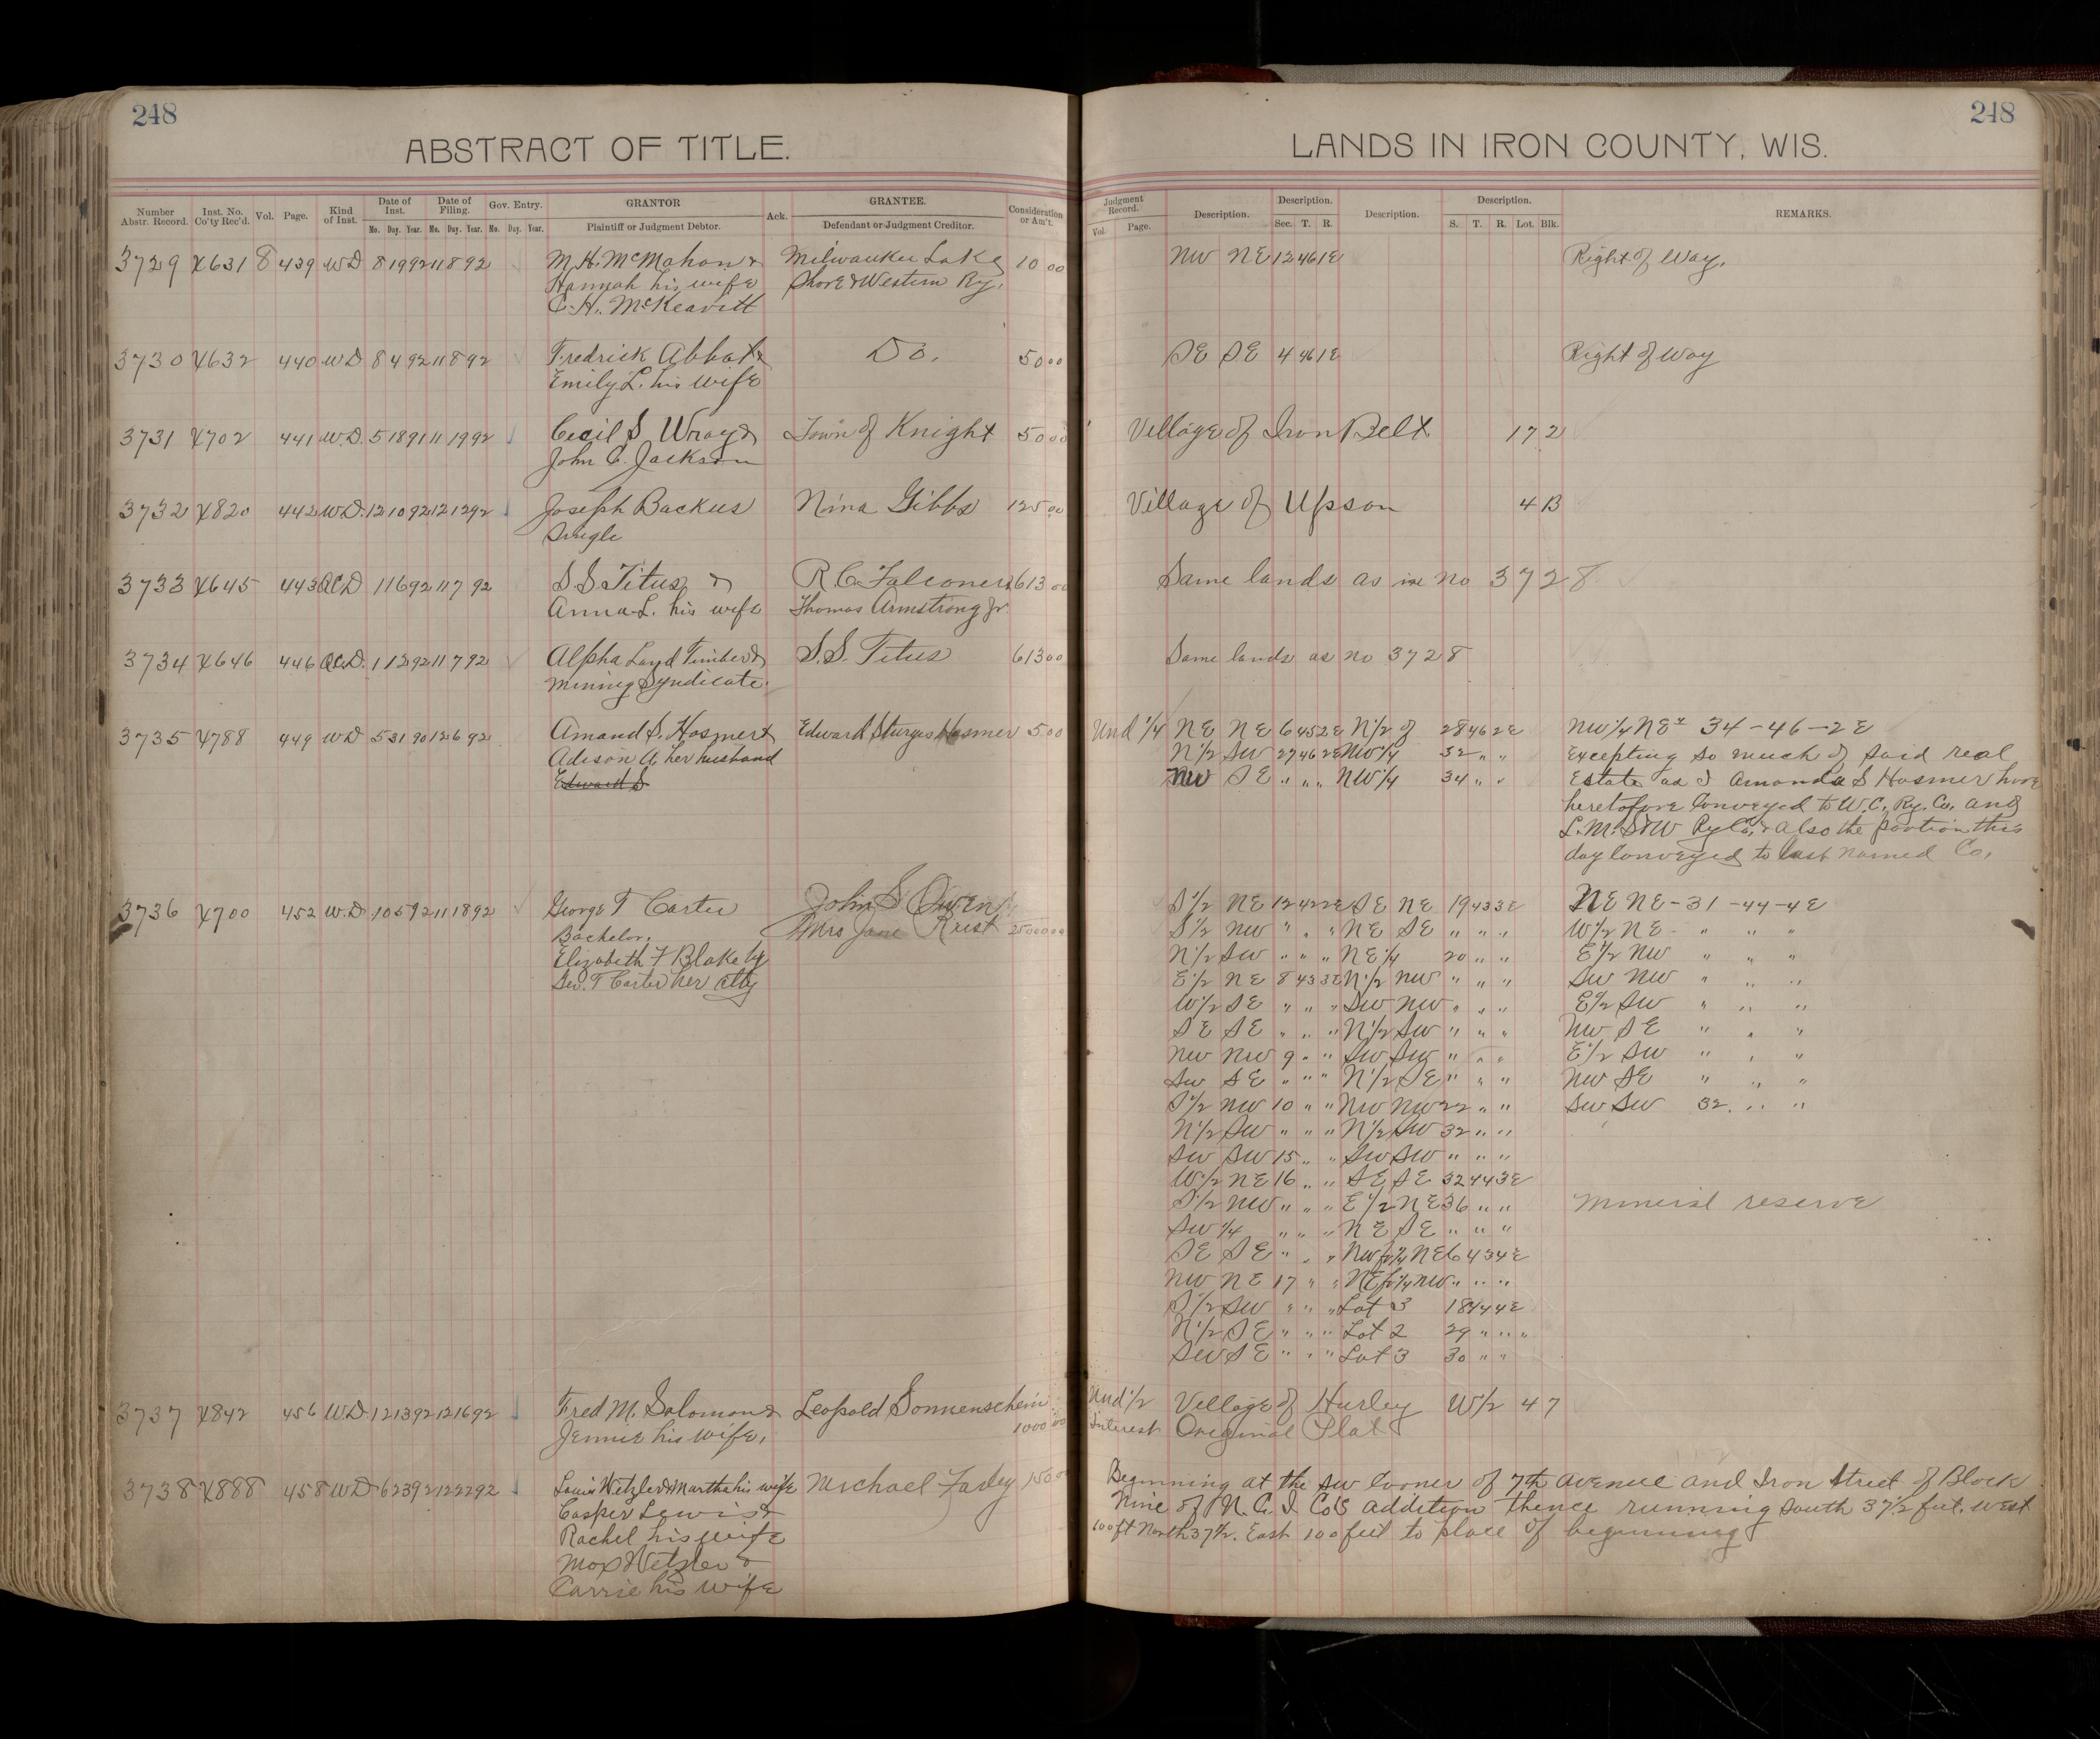 248
ABSTRACT OF TITLE.
Number Abstr. Record. Inst. No. Co'ty Rec'd. Vol. Page. Kind of Inst. Date of Inst. Mo. Day. Year. Date of Filing. Mo. Day. Year. Gov. Entry. Mo. Day. Year. GRANTOR Plaintiff or Judgment Debtor. Ack. GRANTEE. Defendant or Judgment Creditor. Consideration or Am't.
3729 4631 8 439 WD 8 19 92 11 8 92 M. H. McMahon & Milwaukee Lake 10 00
Hannah his wife Shore & Western Ry.
C. H. McKeavitt
3730 4632 440 WD 8 4 92 11 8 92 Fredrick Abbot & Do. 50 00
Emily L. his wife
3731 4702 441 W.D. 5 18 91 11 19 92 Cecil S Wray & Town of Knight 50 00
John C. Jackson
3732 4820 442 WD. 12 10 92 12 12 92 Joseph Backus Nina Gibbs 125 00
Single
3733 4645 443 QCD 11 6 92 11 7 92 S. S. Titus & R. C. Falconer & 613 00
Anna L. his wife Thomas Armstrong Jr
3734 4646 446 QCD. 1 12 92 11 7 92 Alpha Land Timber & S. S. Titus 613 00
Mining Syndicate.
3735 4788 449 WD 5 31 90 12 6 92 Amand S. Hosmer & Edward Sturges Hosmer 5 00
Adison A. her husband
Edward S
3736 4700 452 W.D. 10 5 92 11 18 92 George T Carter John S Owen
Bachelor. Mrs Jane Rust 25000 00
Elizabeth F Blake by
Geo. T Carter her atty
3737 4842 456 WD 12 13 92 12 16 92 Fred M. Solomon & Leopold Sonnenschein
Jennie his wife, 1000 00
3738 4888 458 WD 6 23 92 12 22 92 Louis Wetzler & Martha his wife Michael Farley 150 00
Casper Lewis &
Rachel his wife
Max Wetzler &
Carrie his wife
248
LANDS IN IRON COUNTY, WIS.
Judgment Record. Vol. Page. Description. Description. Sec. T. R. Description. Description. S. T. R. Lot. Blk. REMARKS.
NW NE 12 46 1E Right of Way.
SE SE 4 46 1E Right of Way
Village of Iron Belt 17 2
Village of Upson 4 B
Same lands as in No 3728
Same lands as no 3728
Und 1/4 NE NE 6 45 2E N1/2 of 28 46 2E NW1/4 NE" 34-46-2E
N1/2 SW 27 46 2E NW1/4 32 " " Excepting so much of said real
NW SE " " " NW1/4 34 " " Estate as I Amanda S Hosmer have
heretofore Conveyed to W.C. Ry. Co. and
L.M.S&W Ry Co. & also the portion this
day Conveyed to last named Co.
S1/2 NE 12 42 2E SE NE 19 43 3E NE NE-31-44-4E
S1/2 NW " " " NE SE " " " W1/2 NE - " " "
N1/2 SW " " " NE1/4 20 " " E1/2 NW " " "
E1/2 NE 8 43 3E N1/2 NW " " " SW NW " " "
W1/2 SE " " " SW NW " " " E1/2 SW " " "
SE SE " " " N1/2 SW " " " NW SE " " "
NW NW 9 " " SW SW " " " E1/2 SW " " "
SW SE " " " N1/2 SE " " " NW SE " " "
S1/2 NW 10 " " NW NW 22 " " SW SW 32 " "
N1/2 SW " " " N1/2 SW 32 " "
SW SW 15 " " SW SW " " "
W1/2 NE 16 " " SE SE 32 44 3E
S1/2 NW " " " E1/2 NE 36 " " Mineral reserve
SW1/4 " " " NE SE " " "
SE SE " " " NW fr1/4 NE 6 43 4E
NW NE 17 " " NE fr1/4 NW " " "
S1/2 SW " " " Lot 3 18 44 4E
N1/2 SE " " " Lot 2 29 " " "
SW SE " " " Lot 3 30 " "
Und 1/2 Village of Hurley W1/2 4 7
Interest Original Plat
Beginning at the SW Corner of 7th Avenue and Iron Street of Block
Nine of N. C. I. Co's addition thence running South 37 1/2 feet. West
100 ft North 37 1/2. East 100 feet to place of beginning